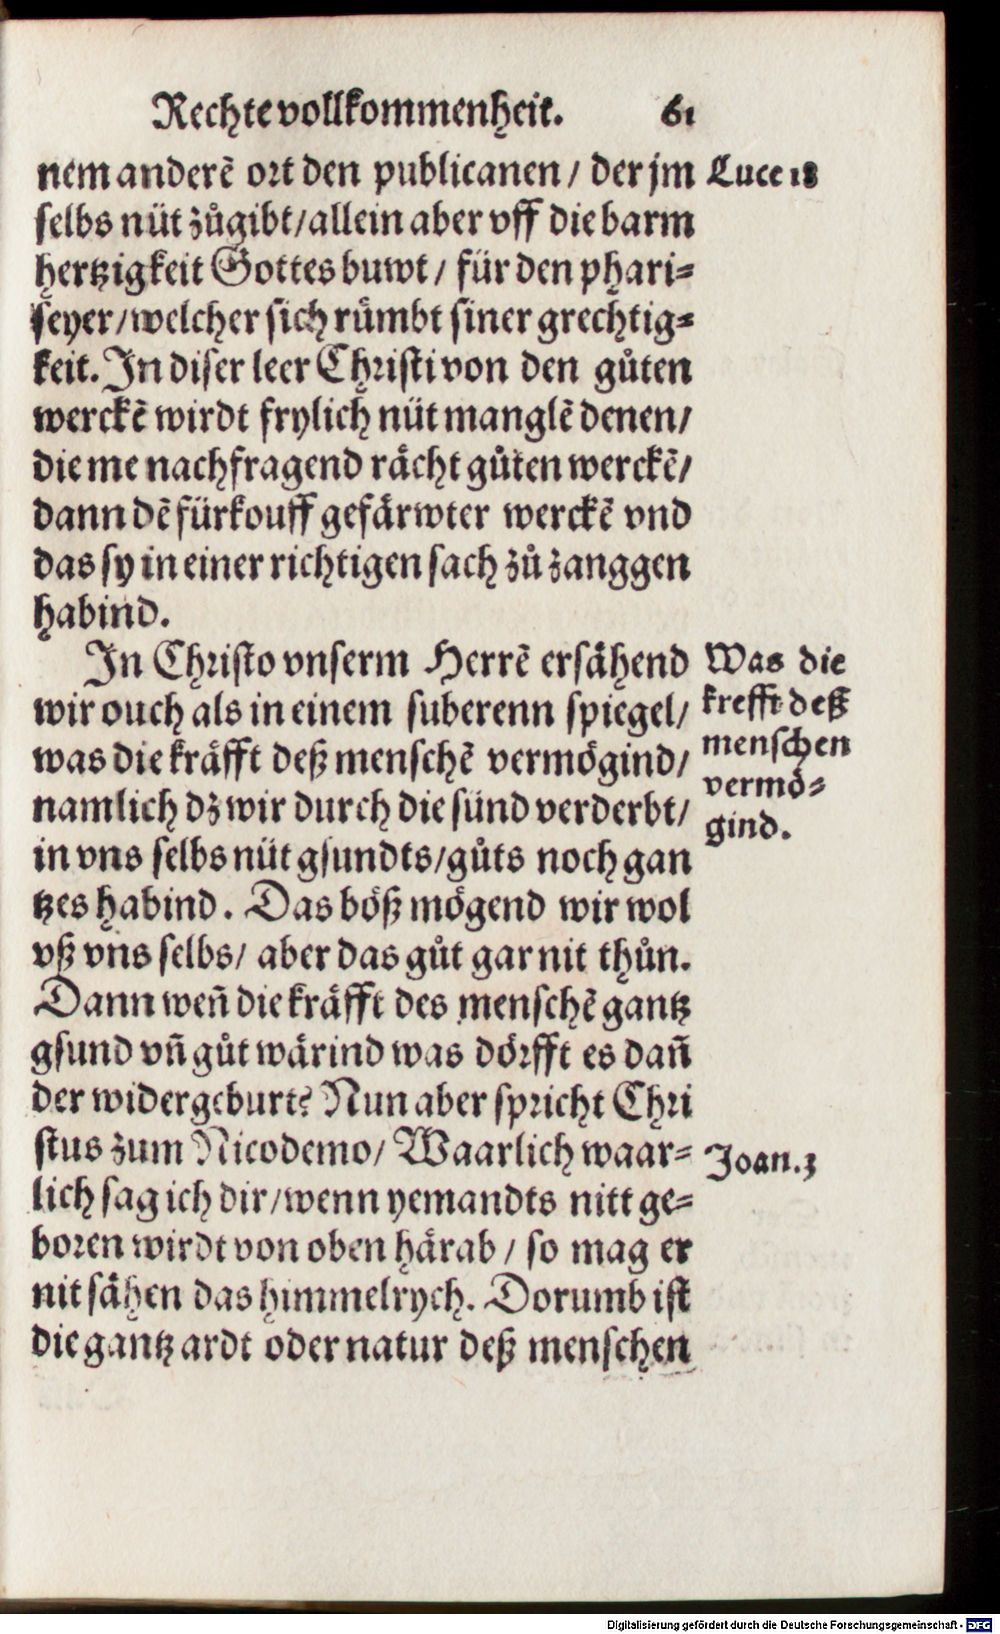 Rechte vollkommenheit. 61
nem anderē ort den publicanen / der jm
Luce 18
selbs nüt zůgibt/allein aber vff die barm
hertzigkeit Gottes buwt / für den phari-
seyer/welcher sich růmbt siner grechtig-
keit. In diser leer Christi von den gůten
werckē wirdt frylich nüt manglē denen/
die me nachfragend råcht gůten werckē/
dann dē fürkouff gefårwter werckē vnd
das sy in einer richtigen sach zů zanggen
habind.
In Christo vnserm Herrē ersåhend
wir ouch als in einem suberenn spiegel/
was die kråfft deß menschē vermögind/
namlich dz wir durch die sünd verderbt/
in vns selbs nüt gsundts/gůts noch gan
tzes habind. Das böß mögend wir wol
vß vns selbs/ aber das gůt gar nit thůn.
Was die
krefft deß
menschen
vermö-
gind.
Dann weñ die kråfft des menschē gantz
gsund vñ gůt wårind was dörfft es dañ
der widergeburt? Nun aber spricht Chri
stus zum Nicodemo/ Waarlich waar-
Joan.3
lich sag ich dir/wenn yemandts nitt ge-
boren wirdt von oben hårab / so mag er
nit såhen das himmelrych. Dorumb ist
die gantz ardt oder natur deß menschen
Digitalisierung gefördert durch die Deutsche Forschungsgemeinschaft - DFG